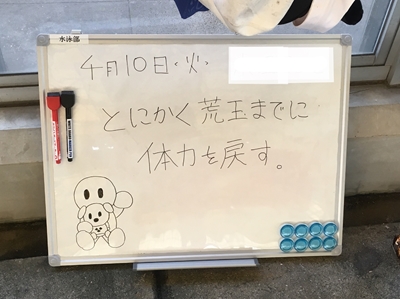 水泳部
4月10日(火)
とにかく荒玉までに
体力を戻す。